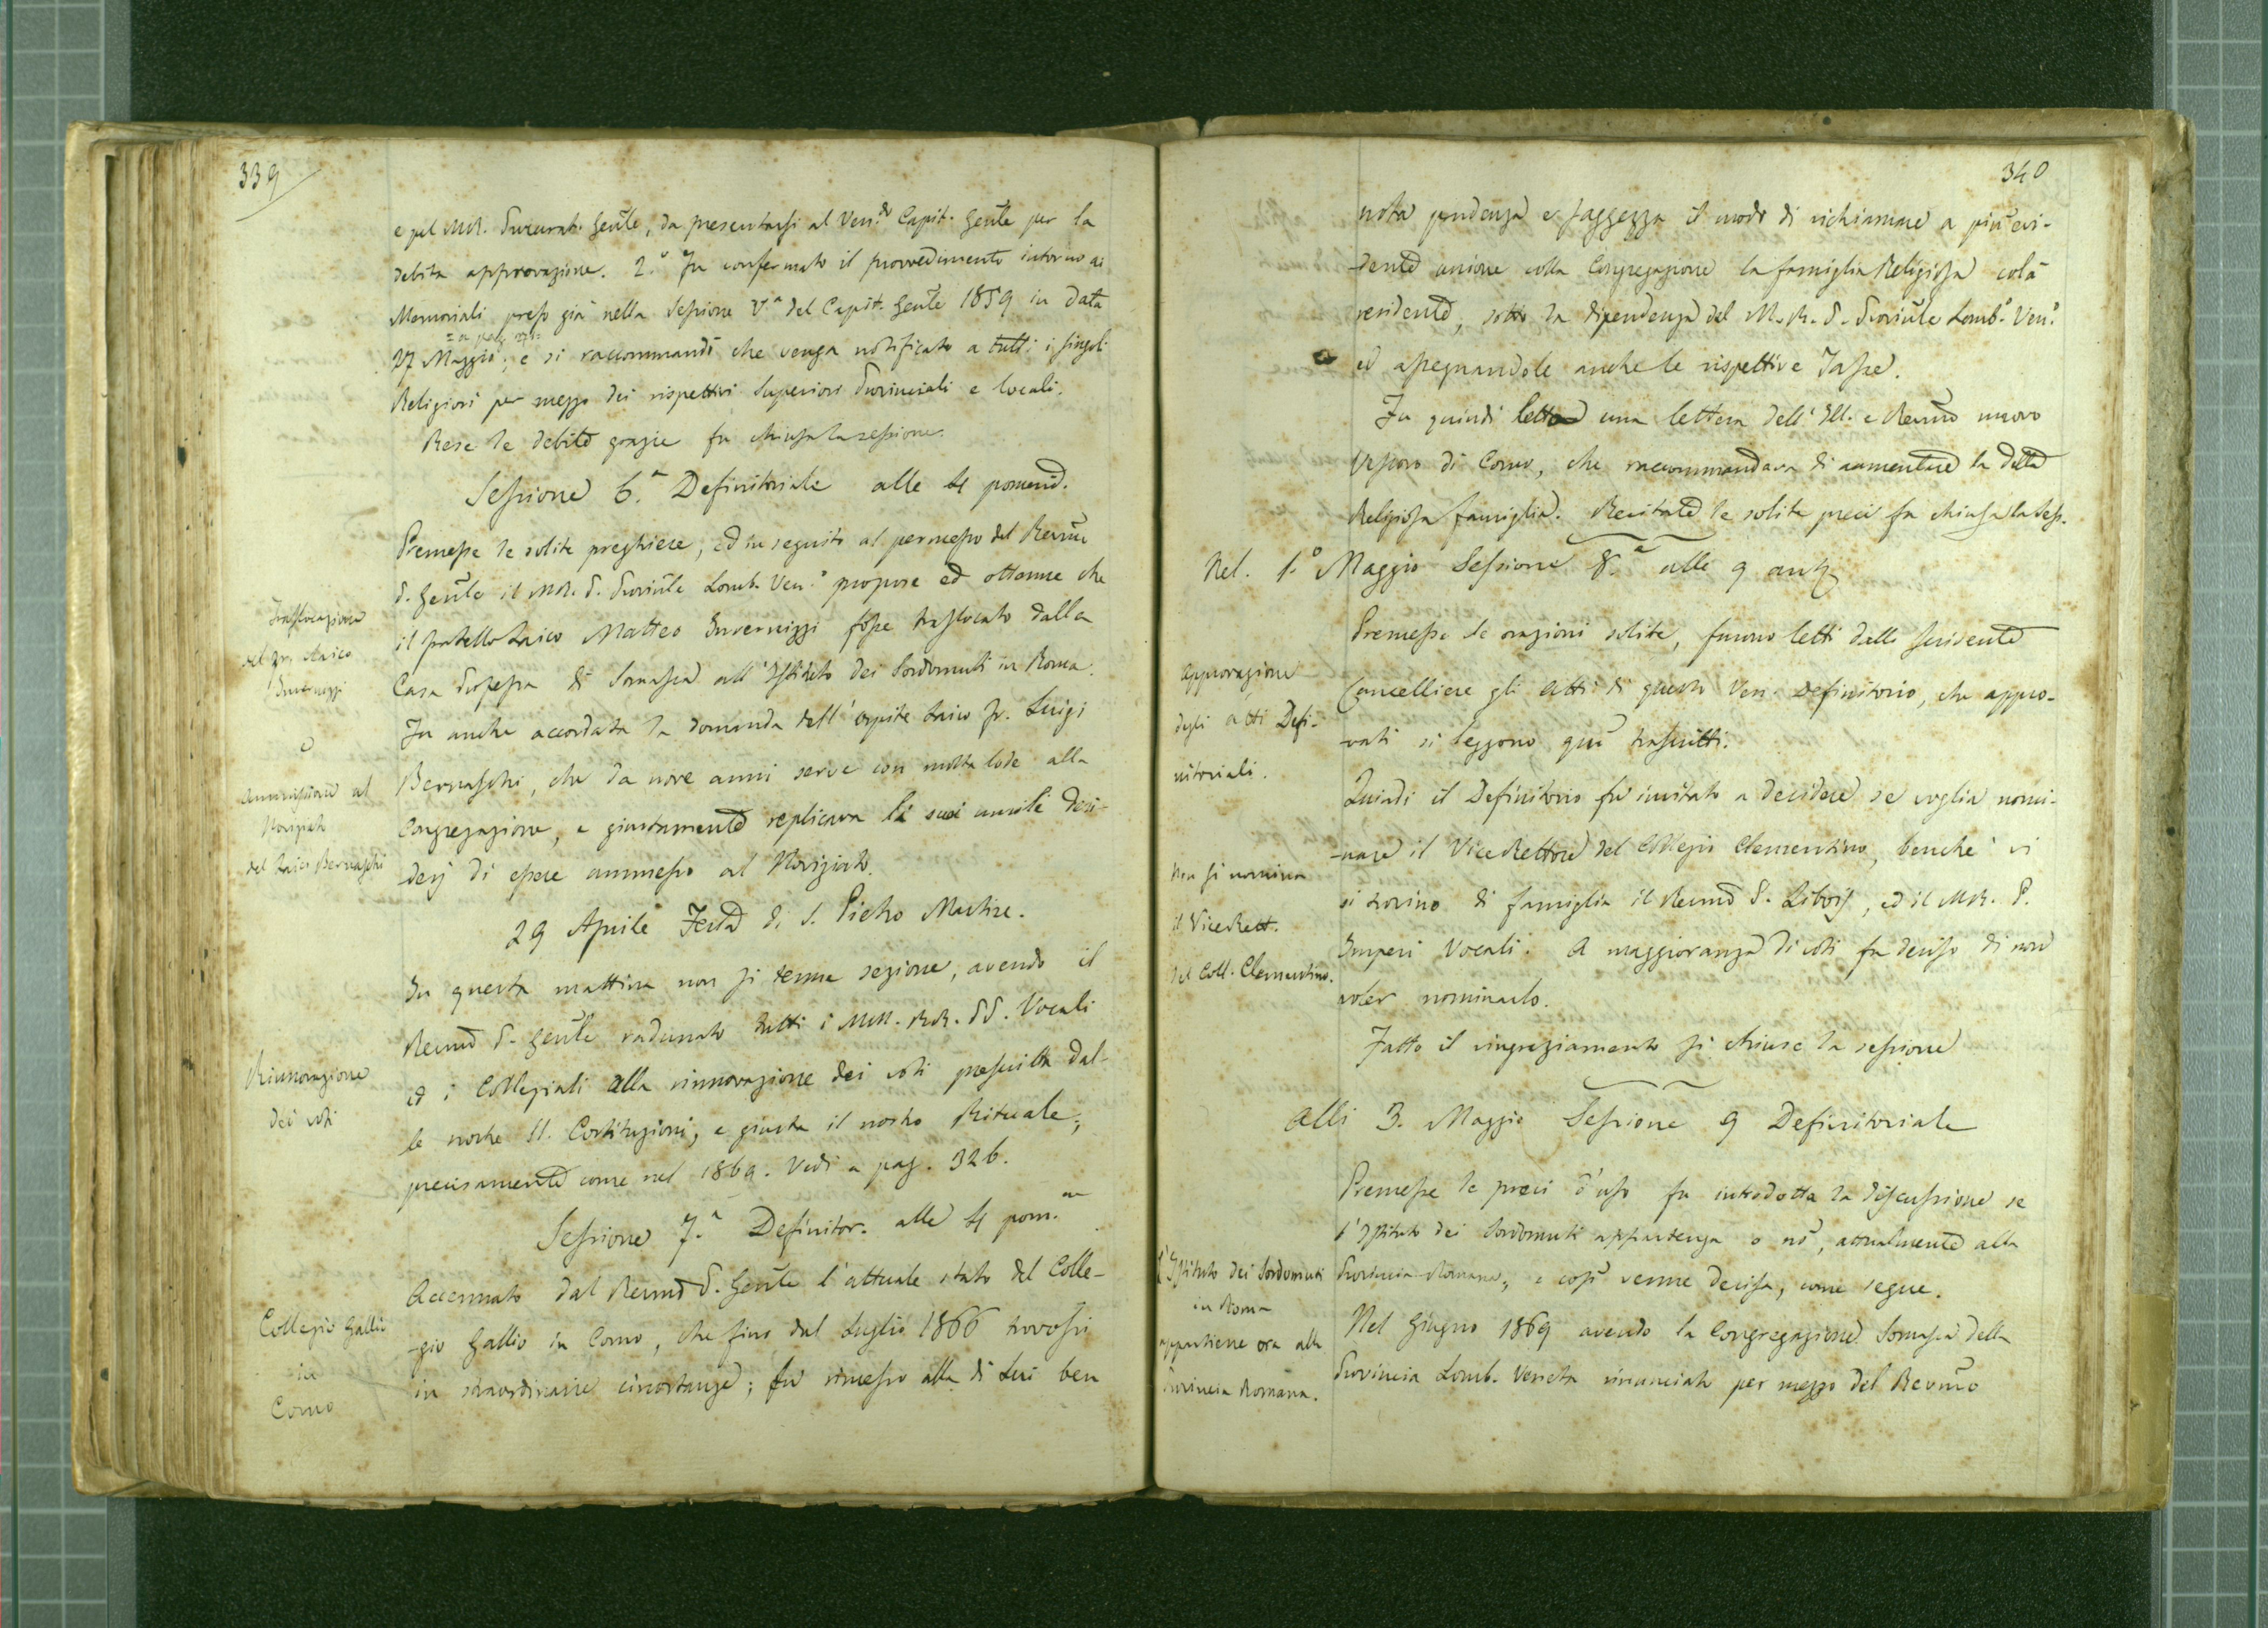 339
e pel M.R. Procurat. Genle, da presentarsi al Ven.do Capit. Genle per la
debita approvazione. 2.° Fu confermato il provvedimento intorno ai
Memoriali preso già nella Sessione V.a del Capit. Genle 1859 in data
27 Maggio; e si raccommandò che venga notificato a tutti i singoli
Religiosi per mezzo dei rispettivi Superiori Provinciali e locali.
Rese le debite grazie fu chiusa la sessione.
Sessione 6.a Definitoriale alle 4 pomerid.
Premesse le solite preghiere, ed in seguito al permesso del Revmo
P. Genle il M.R. P. Provinle Lomb. Ven.° propose ed ottenne che
il fratello Laico Matteo Invernizzi fosse traslocato dalla
Casa Professa di Somasca all'Istituto dei Sordomuti in Roma.
Fu anche accordata la domanda dell'ospite Laico Fr. Luigi
Bernaschi, che da nove anni serve con molta lode alla
Congregazione, e giustamente replicava li suoi umili desi-
derj di essere ammesso al Noviziato.
Traslocazione
del Fr. Laico
Invernizzi
e
Ammissione al
Noviziato
del Laico Bernaschi
29 Aprile Festa di S. Pietro Martire.
In questa mattina non si tenne sezione, avendo il
Revmo P. Genle radunato tutti i MM. RR. PP. Vocali
ed i Collegiali alla rinnovazione dei voti prescritta dal-
le nostre SS. Costituzioni, e giusta il nostro Rituale;
precisamente come nel 1869. Vedi a pag. 326.
Rinnovazione
dei voti
Sessione 7.a Definitor. alle 4 pom.ne
Accennato dal Revmo P. Genle l'attuale stato del Colle-
gio Gallio in Como, che fino dal Luglio 1866 trovasi
in straordinarie circostanze; fu rimesso alla di Lui ben
Collegio Gallio
in
Como
340
nota prudenza e saggezza il modo di richiamare a più evi-
dente unione colla Congregazione la famiglia Religiosa colà
residente, sotto la dipendenza del M.R. P. Provinle Lomb.° Ven.°
ed assegnandole anche le rispettive Tasse.
Fu quindi letta una lettera dell'Ill. e Revmo nuovo
Vescovo di Como, che raccommandava di aumentare la detta
Religiosa famiglia. Recitate le solite preci fu chiusa la Sess.
Nel. 1.° Maggio Sessione 8.a alle 9 ant.
Premesse le orazioni solite, furono letti dallo scrivente
Cancelliere gli Atti di questo Ven. Definitorio, che appro-
vati si leggono qui trascritti.
Approvazione
degli atti Defi-
nitoriali.
Quindi il Definitorio fu invitato a decidere se voglia nomi-
nare il ViceRettore del Collegio Clementino, benchè vi
si trovino di famiglia il Revmo P. Libois, ed il M.R. P.
Imperi Vocali. A maggioranza di voti fu deciso di non
voler nominarlo.
Non si nomina
il ViceRett.
del Coll. Clementino.
Fatto il ringraziamento si chiuse la sessione
Alli 3. Maggio Sessione 9 Definitoriale
Premesse le preci d'uso fu introdotta la discussione se
l'Istituto dei Sordomuti appartenga o nò, attualmente alla
Provincia Romana, e così venne decisa, come segue.
Nel Giugno 1869 avendo la Congregazione Somasca della
Provincia Lomb. Veneta rinunciato per mezzo del Revmo
L'Istituto dei Sordomuti
in Roma
appartiene ora alla
Provincia Romana.